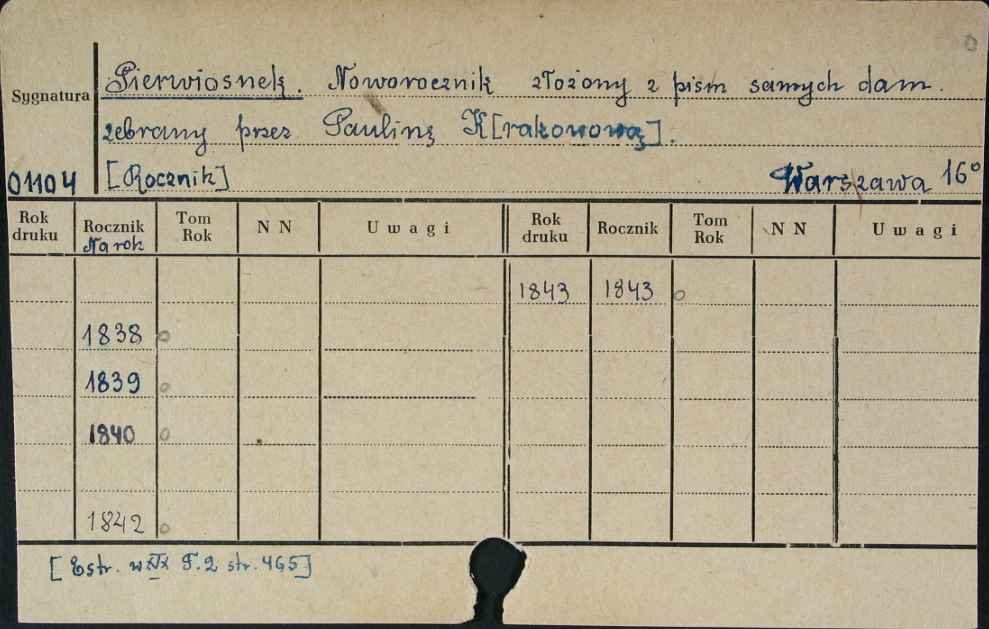 Pierwiosnek. Noworocznik złożony z pism samych dam.
Sygnatura
zebrany przez Paulinę K[rakowową].
01104 [Rocznik] Warszawa 16°
Rok druku Rocznik Na rok Tom Rok N N Uwagi Rok druku Rocznik Tom Rok N N Uwagi
1843 1843 o
1838 o
1839 o
1840 o
1842 o
[Estr. w XIX T.2 str. 465]